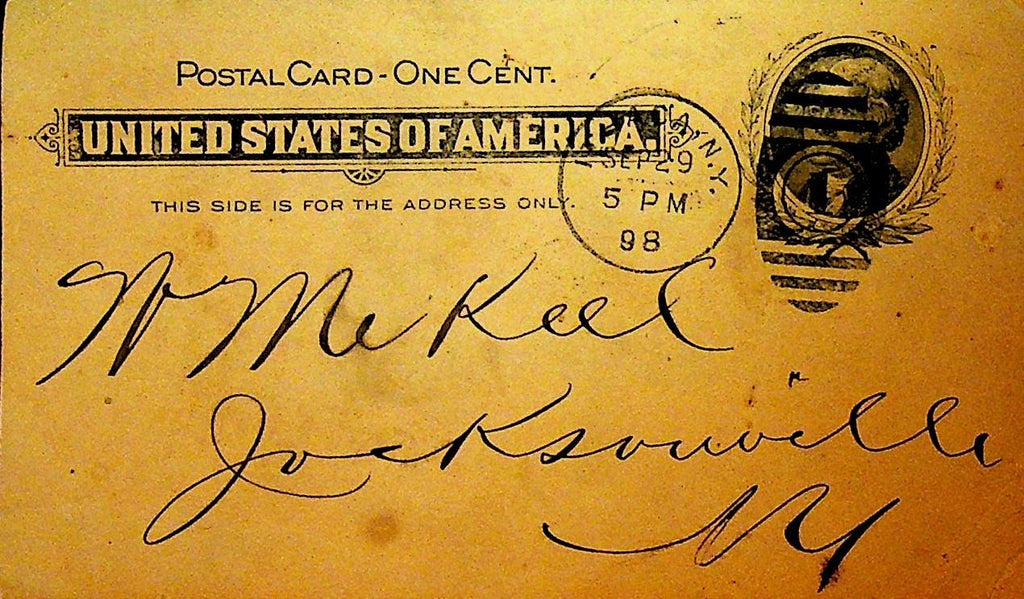 POSTAL CARD - ONE CENT.
UNITED STATES OF AMERICA.
THIS SIDE IS FOR THE ADDRESS ONLY.
N.Y.
SEP 29
5 PM
98
1
W McKeel
Jacksonville
NY